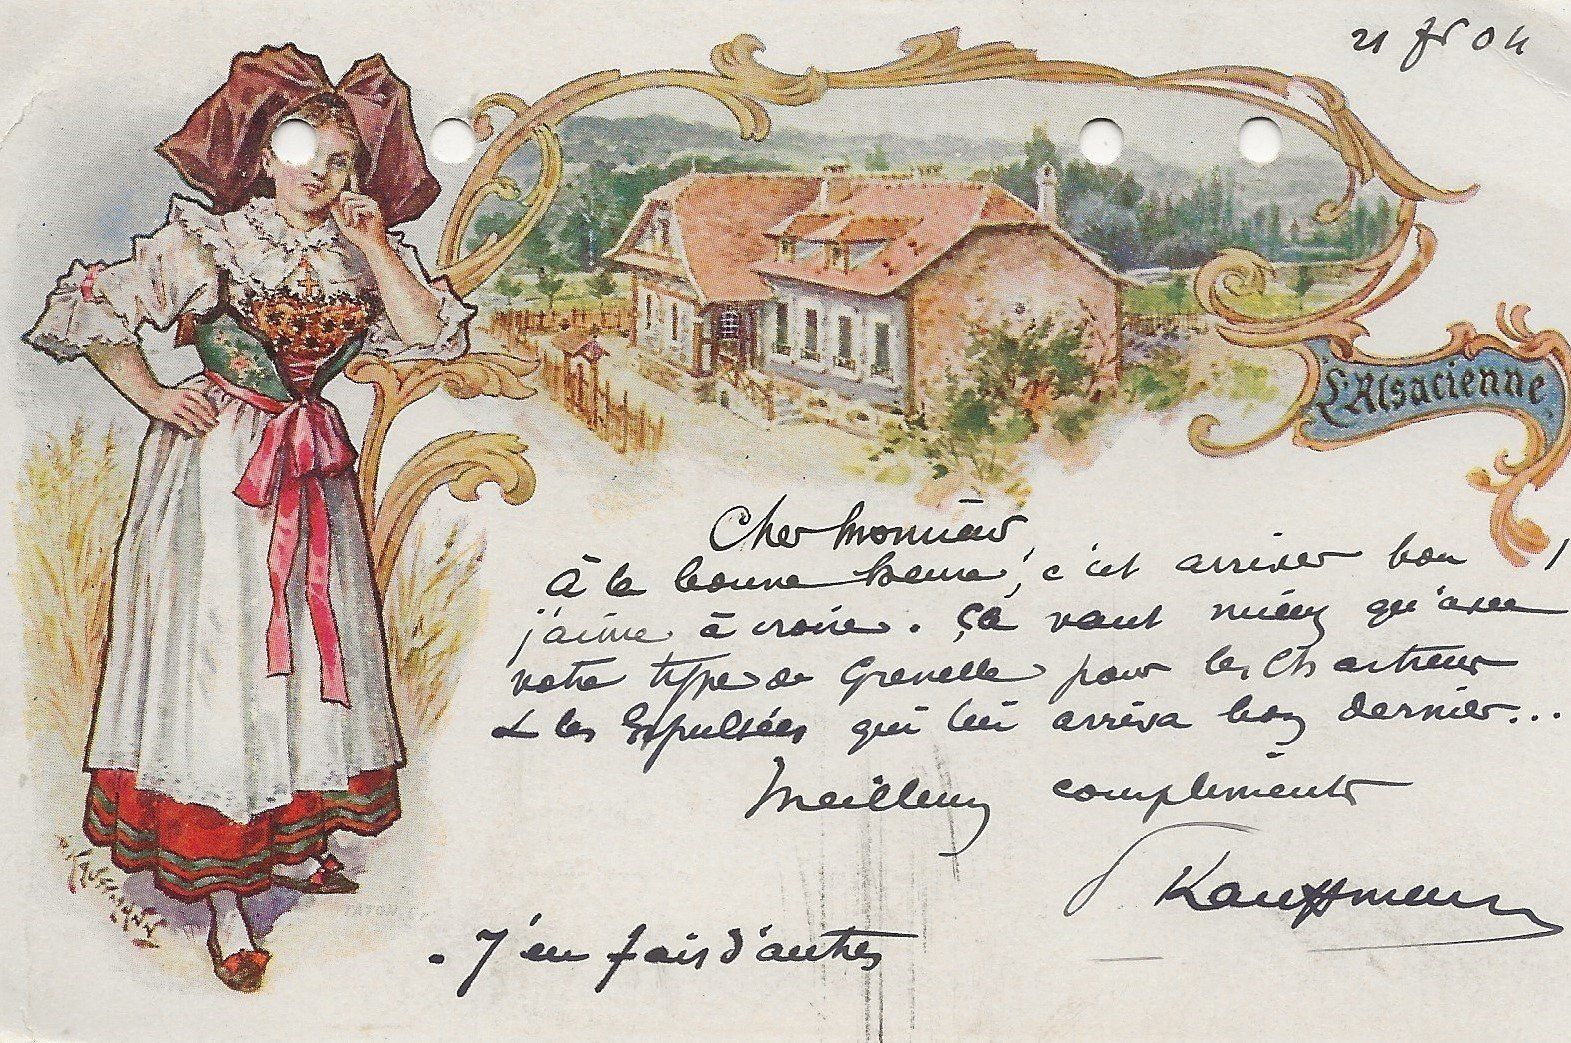 21 fr 04
L'Alsacienne
Cher Monsieur
à la bonne heure, c'est arriver bon
j'aime à croire. Ça vaut mieux qu'avec
votre type de Grenelle pour les Chartreux
& les Expulsées qui lui arriva bon dernier...
Meilleurs compliments
Kauffmann
. J'en fais d'autres
KAUFFMANN